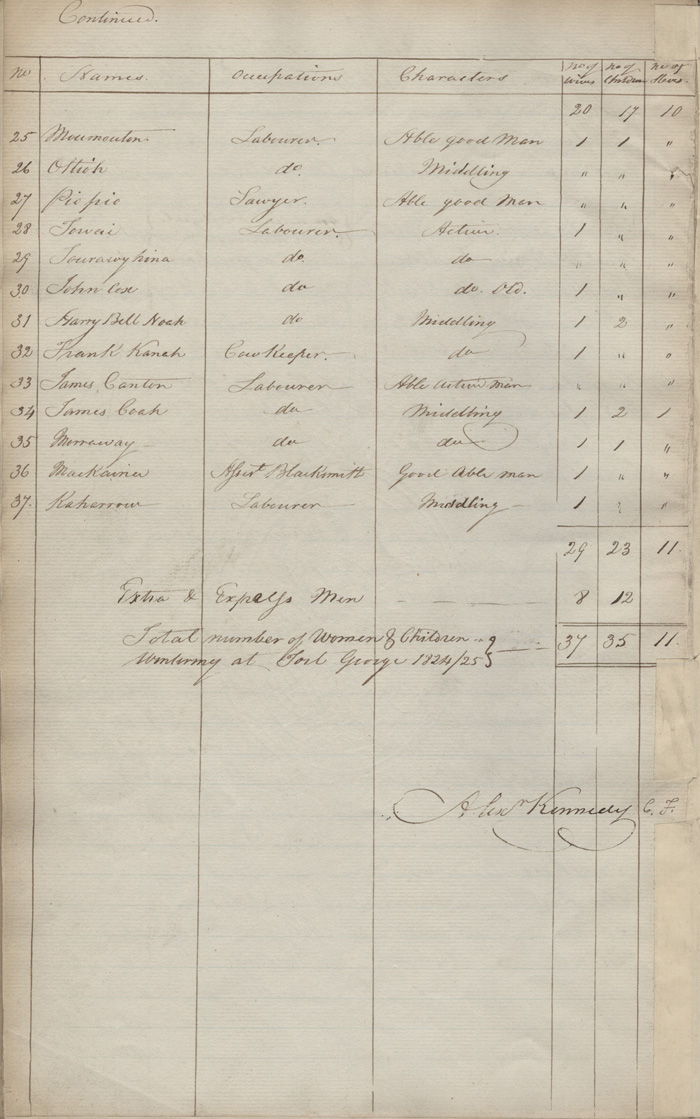 Continued.
No Names. Occupations Characters No of Wives No of Children No of Slaves
20 17 10
25 Moumouton Labourer. Able good Man 1 1 "
26 Ottich do. Middling " "
27 Piopio Sawyer. Able good Man " " "
28 Towai Labourer. Active. 1 " "
29 Tourawhyhina do. do " " "
30 John Cox do do. Old. 1 " "
31 Harry Bell Noah do Middling 1 2 "
32 Frank Kanah Cow Keeper. do 1 " "
33 James Canton Labourer Able active man " " "
34 James Coah do Middling 1 2 1
35 Morraway do do 1 1 "
36 Mackaina Assist Blacksmith Good Able man 1 " "
37. Kaharrow Labourer Middling 1 "
29 23 11.
Extra & Express Men 8 12
Total number of Women & Children
Wintering at Fort George 1824/25 } 37 35 11.
Alexr Kennedy C. F.